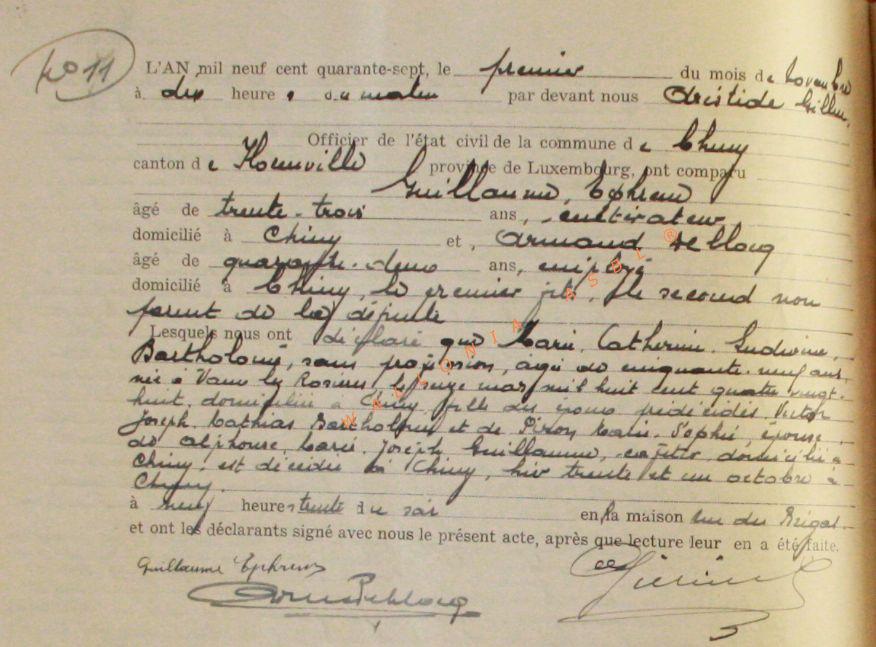 No 11
L'AN mil neuf cent quarante-sept, le premier du mois de novembre
à dix heures du matin par devant nous Aristide
Officier de l'état civil de la commune de Chiny
canton de Florenville province de Luxembourg, ont comparu
Guillaume, Ephrem
âgé de trente-trois ans, cultivateur
domicilié à Chiny et, Armand Deblocq
âgé de quarante-deux ans, employé
domicilié à Chiny, le premier fils, le second non
parent de la défunte
Lesquels nous ont déclaré que Marie, Catherine, Ludivine,
Bartholomé, sans profession, âgée de cinquante-neuf ans,
née à Vaux lez Rosières, le mars mil huit cent quatre vingt
huit, domiciliée à Chiny, fille des époux prédécédés Victor
Joseph, Mathias Bartholomé et de Pirson Marie, Sophie, épouse
de Alphonse, Marie, Joseph Guillaume, domicilié à
Chiny, est décédée à Chiny, hier trente et un octobre à
Chiny
à neuf heures trente du soir en sa maison rue du
et ont les déclarants signé avec nous le présent acte, après que lecture leur en a été faite.
Guillaume Ephrem
Arm Deblocq
WALLONIA ASBL ©